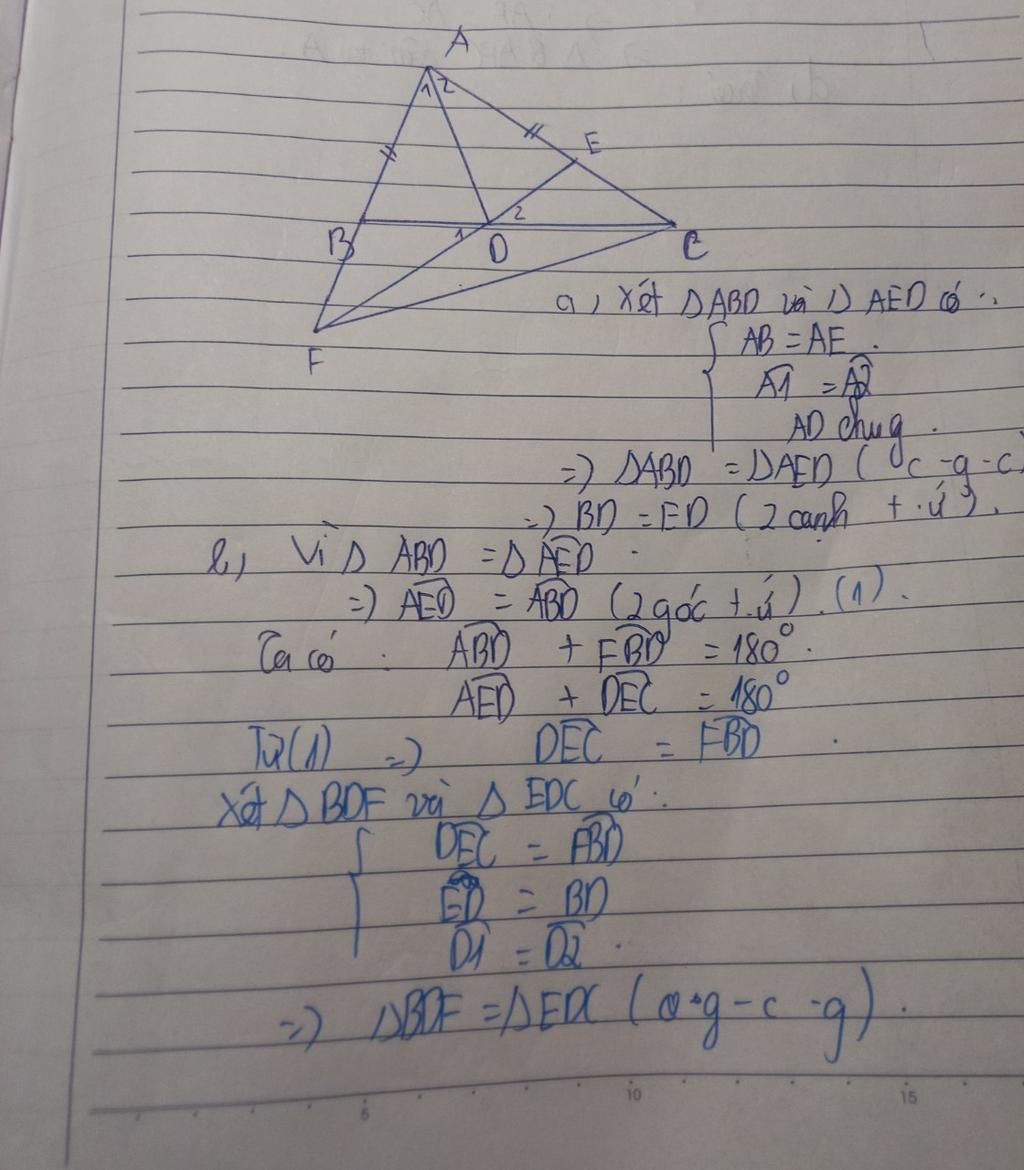 A
1 2
E
2
B
1
D
C
F
a, Xét Δ ABD và Δ AED có :
AB = AE .
A1 = A2
AD chug .
=) ΔABD = ΔAED ( c - g - c )
=) BD = ED ( 2 cạnh t . ứ ) .
b, Vì Δ ABD = Δ AED .
=) AED = ABD ( 2 góc t . ứ ) . (1) .
Ta có : ABD + FBD = 180° .
AED + DEC = 180°
Từ (1) =) DEC = FBD .
Xét Δ BDF và Δ EDC có :
DEC = FBD
ED = BD
D1 = D2 .
=) ΔBDF = ΔEDC ( g - c - g ) .
5 10 15